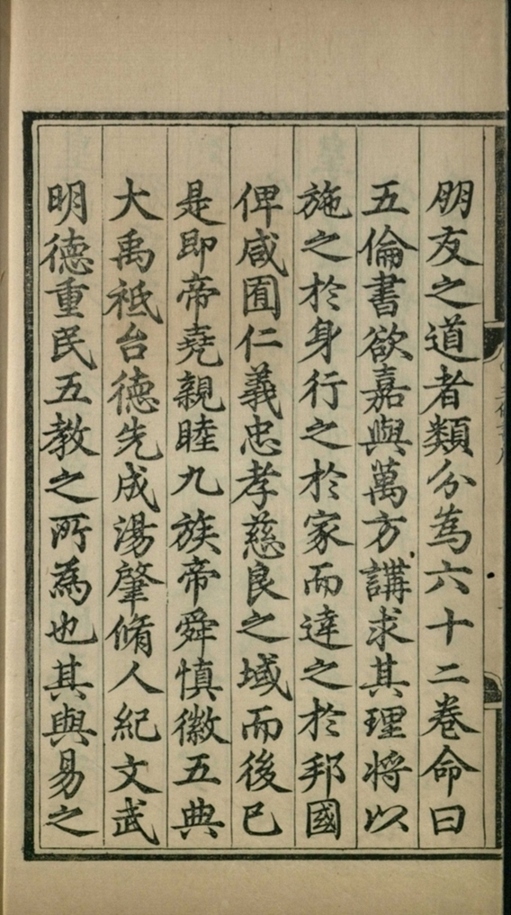 朋友之道者類分為六十二卷命曰
五倫書欲嘉與萬方講求其理將以
施之於身行之於家而達之於邦國
俾咸囿仁義忠孝慈良之域而後已
是即帝堯親睦九族帝舜慎徽五典
大禹祗台德先成湯肇脩人紀文武
明德重民五教之所為也其與易之